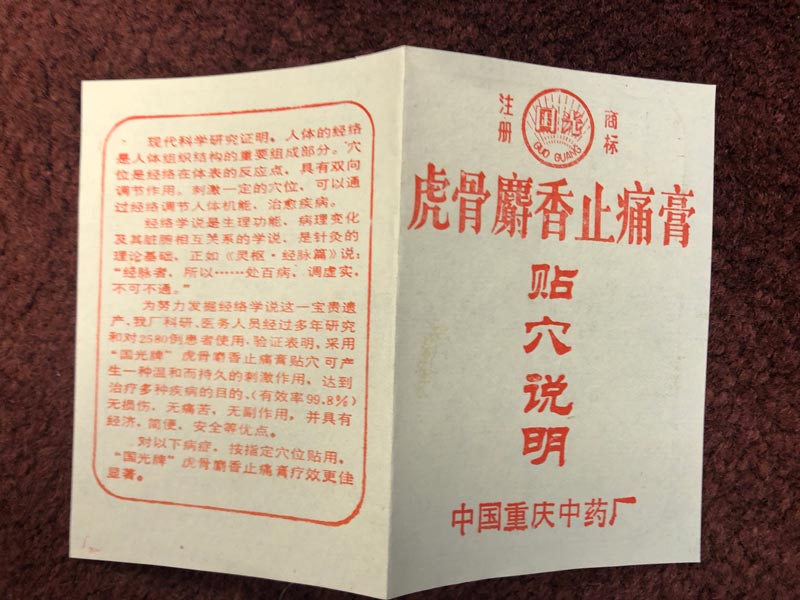 现代科学研究证明，人体的经络
是人体组织结构的重要组成部分。穴
位是经络在体表的反应点，具有双向
调节作用。刺激一定的穴位，可以通
过经络调节人体机能、治愈疾病。
经络学说是生理功能、病理变化
及其脏腑相互关系的学说，是针灸的
理论基础，正如《灵枢·经脉篇》说：
“经脉者，所以……处百病，调虚实，
不可不通。”
为努力发掘经络学说这一宝贵遗
产，我厂科研、医务人员经过多年研究
和对2580例患者使用、验证表明，采用
“国光牌”虎骨麝香止痛膏贴穴可产
生一种温和而持久的刺激作用，达到
治疗多种疾病的目的，（有效率99.8%）
无损伤、无痛苦、无副作用，并具有
经济、简便、安全等优点。
对以下病症，按指定穴位贴用，
“国光牌”虎骨麝香止痛膏疗效更佳
显著。
注册
国光
GUO GUANG
商标
虎骨麝香止痛膏
贴穴说明
中国重庆中药厂